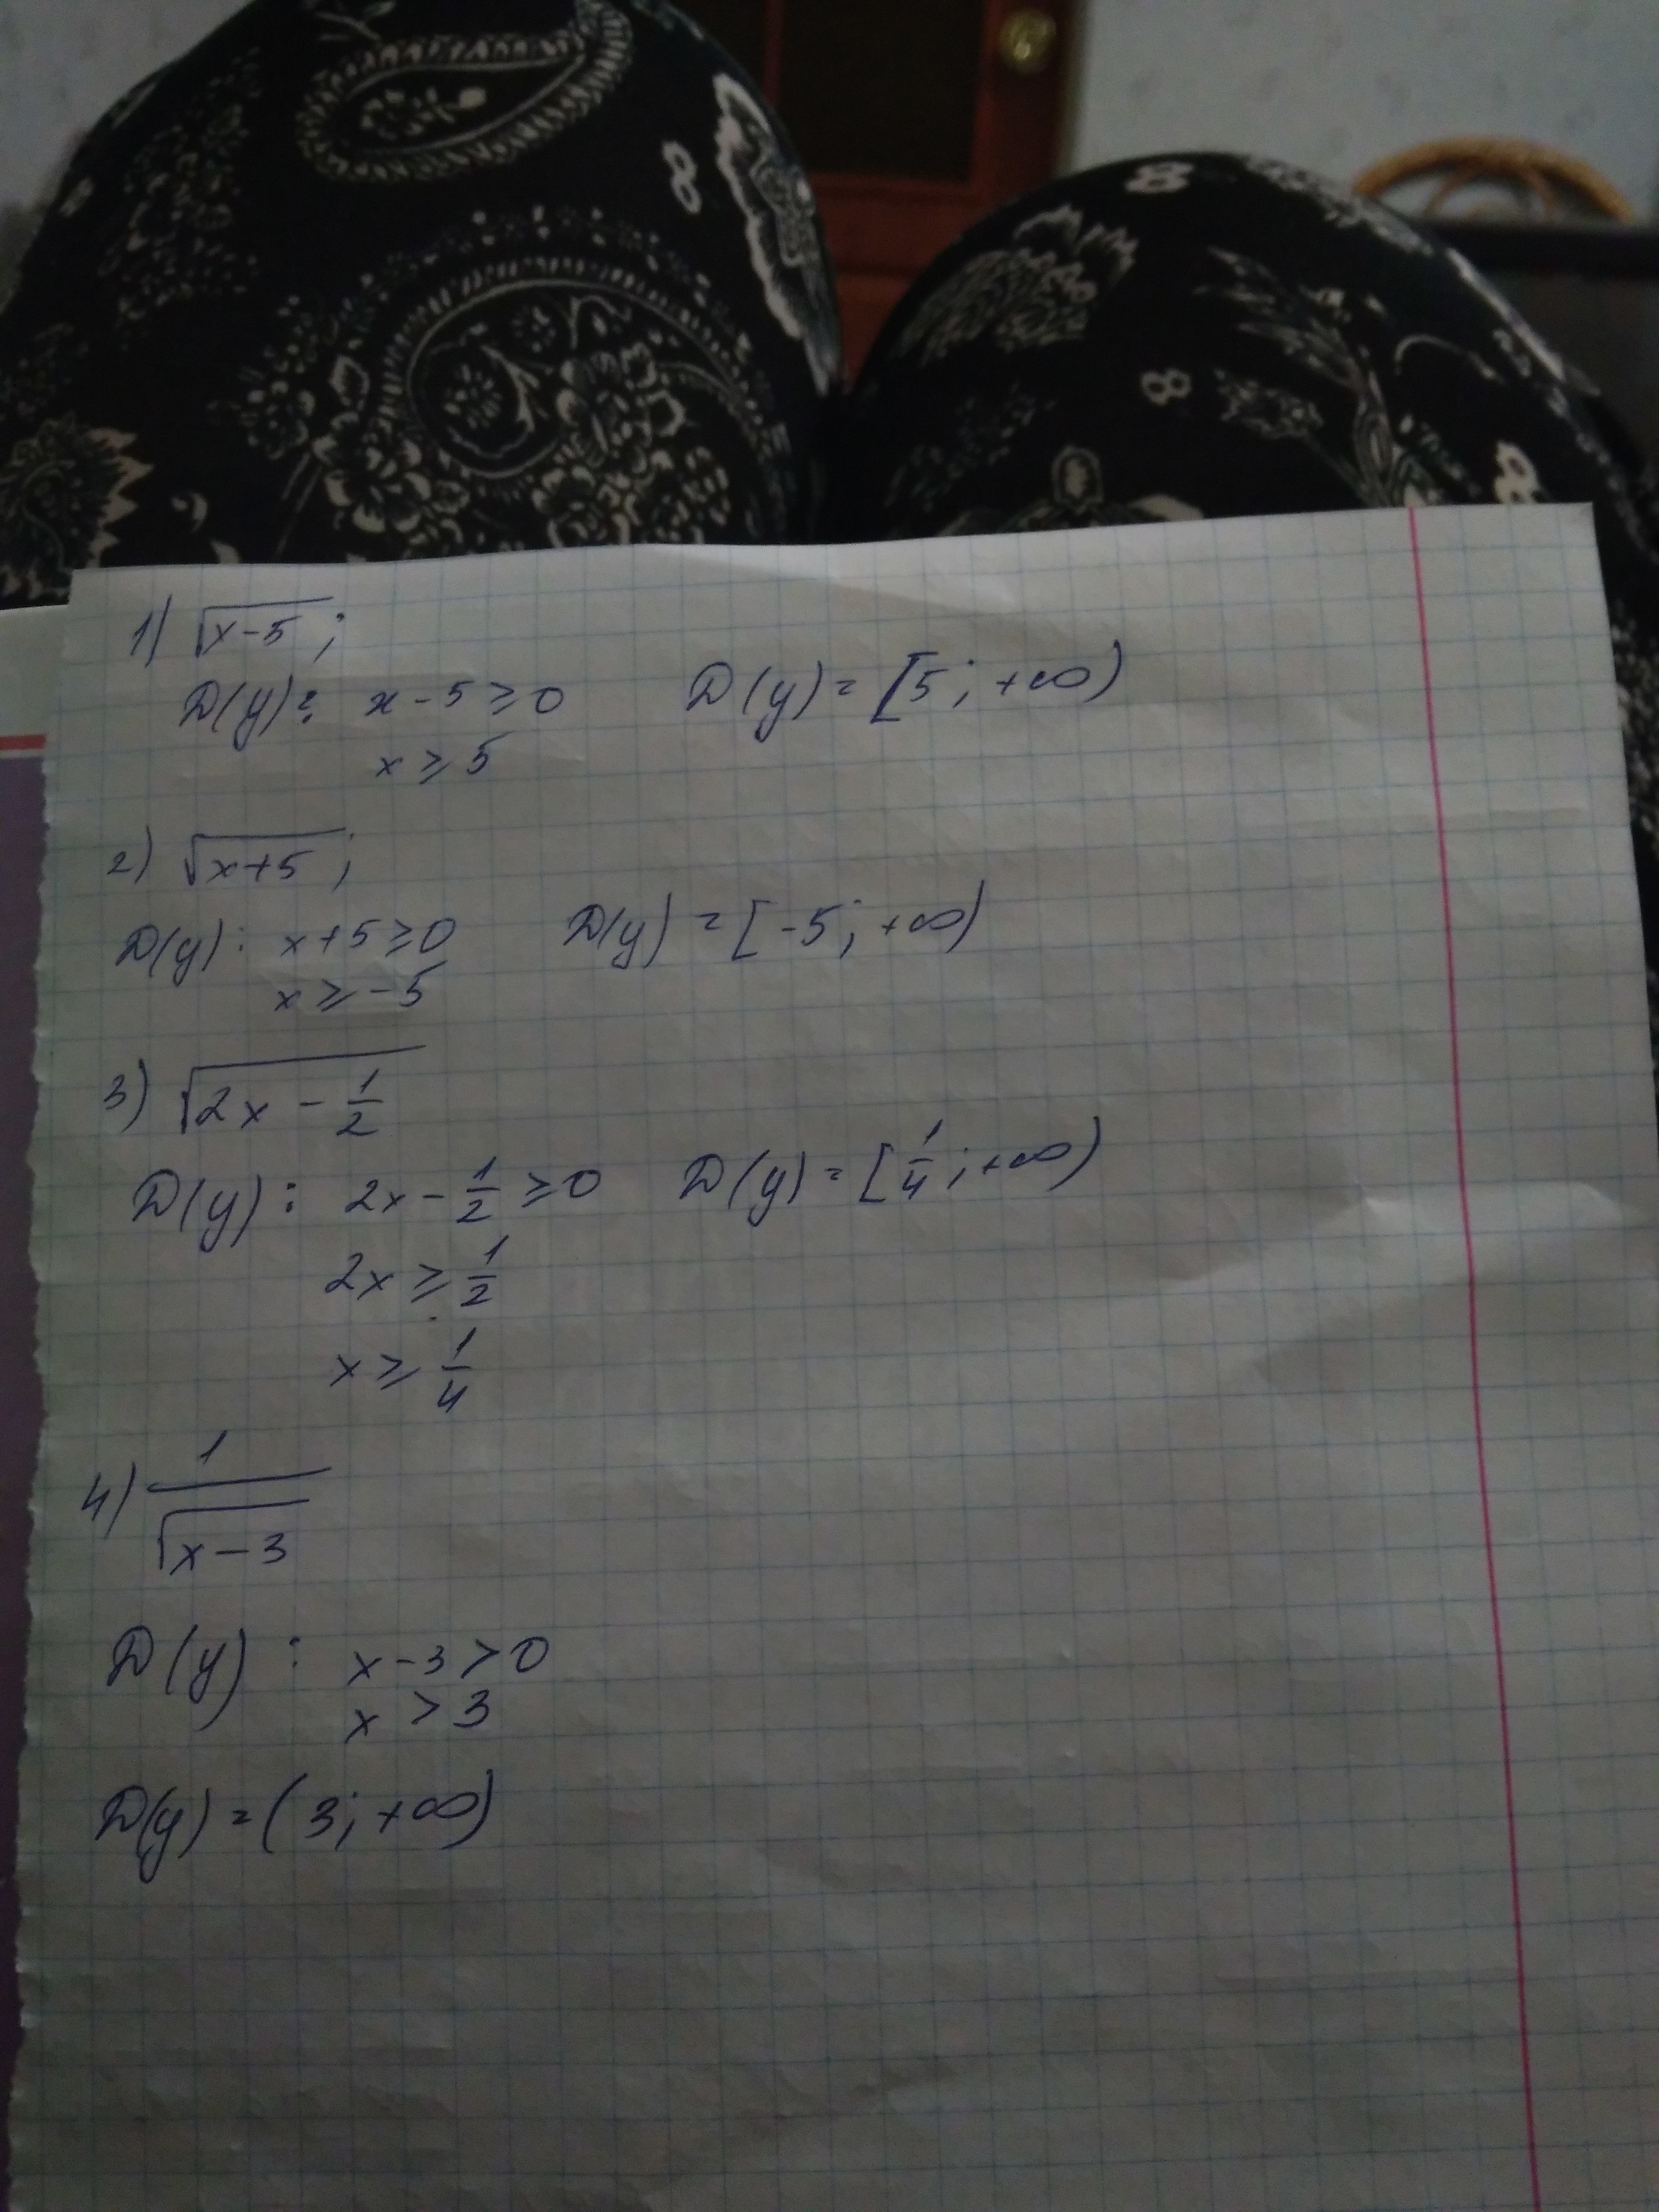 1) √(x-5);
D(y): x-5≥0 D(y)=[5;+∞)
x≥5
2) √(x+5);
D(y): x+5≥0 D(y)=[-5;+∞)
x≥-5
3) √(2x-1/2)
D(y): 2x-1/2≥0 D(y)=[1/4;+∞)
2x≥1/2
x≥1/4
4) 1/√(x-3)
D(y): x-3>0
x>3
D(y)=(3;+∞)